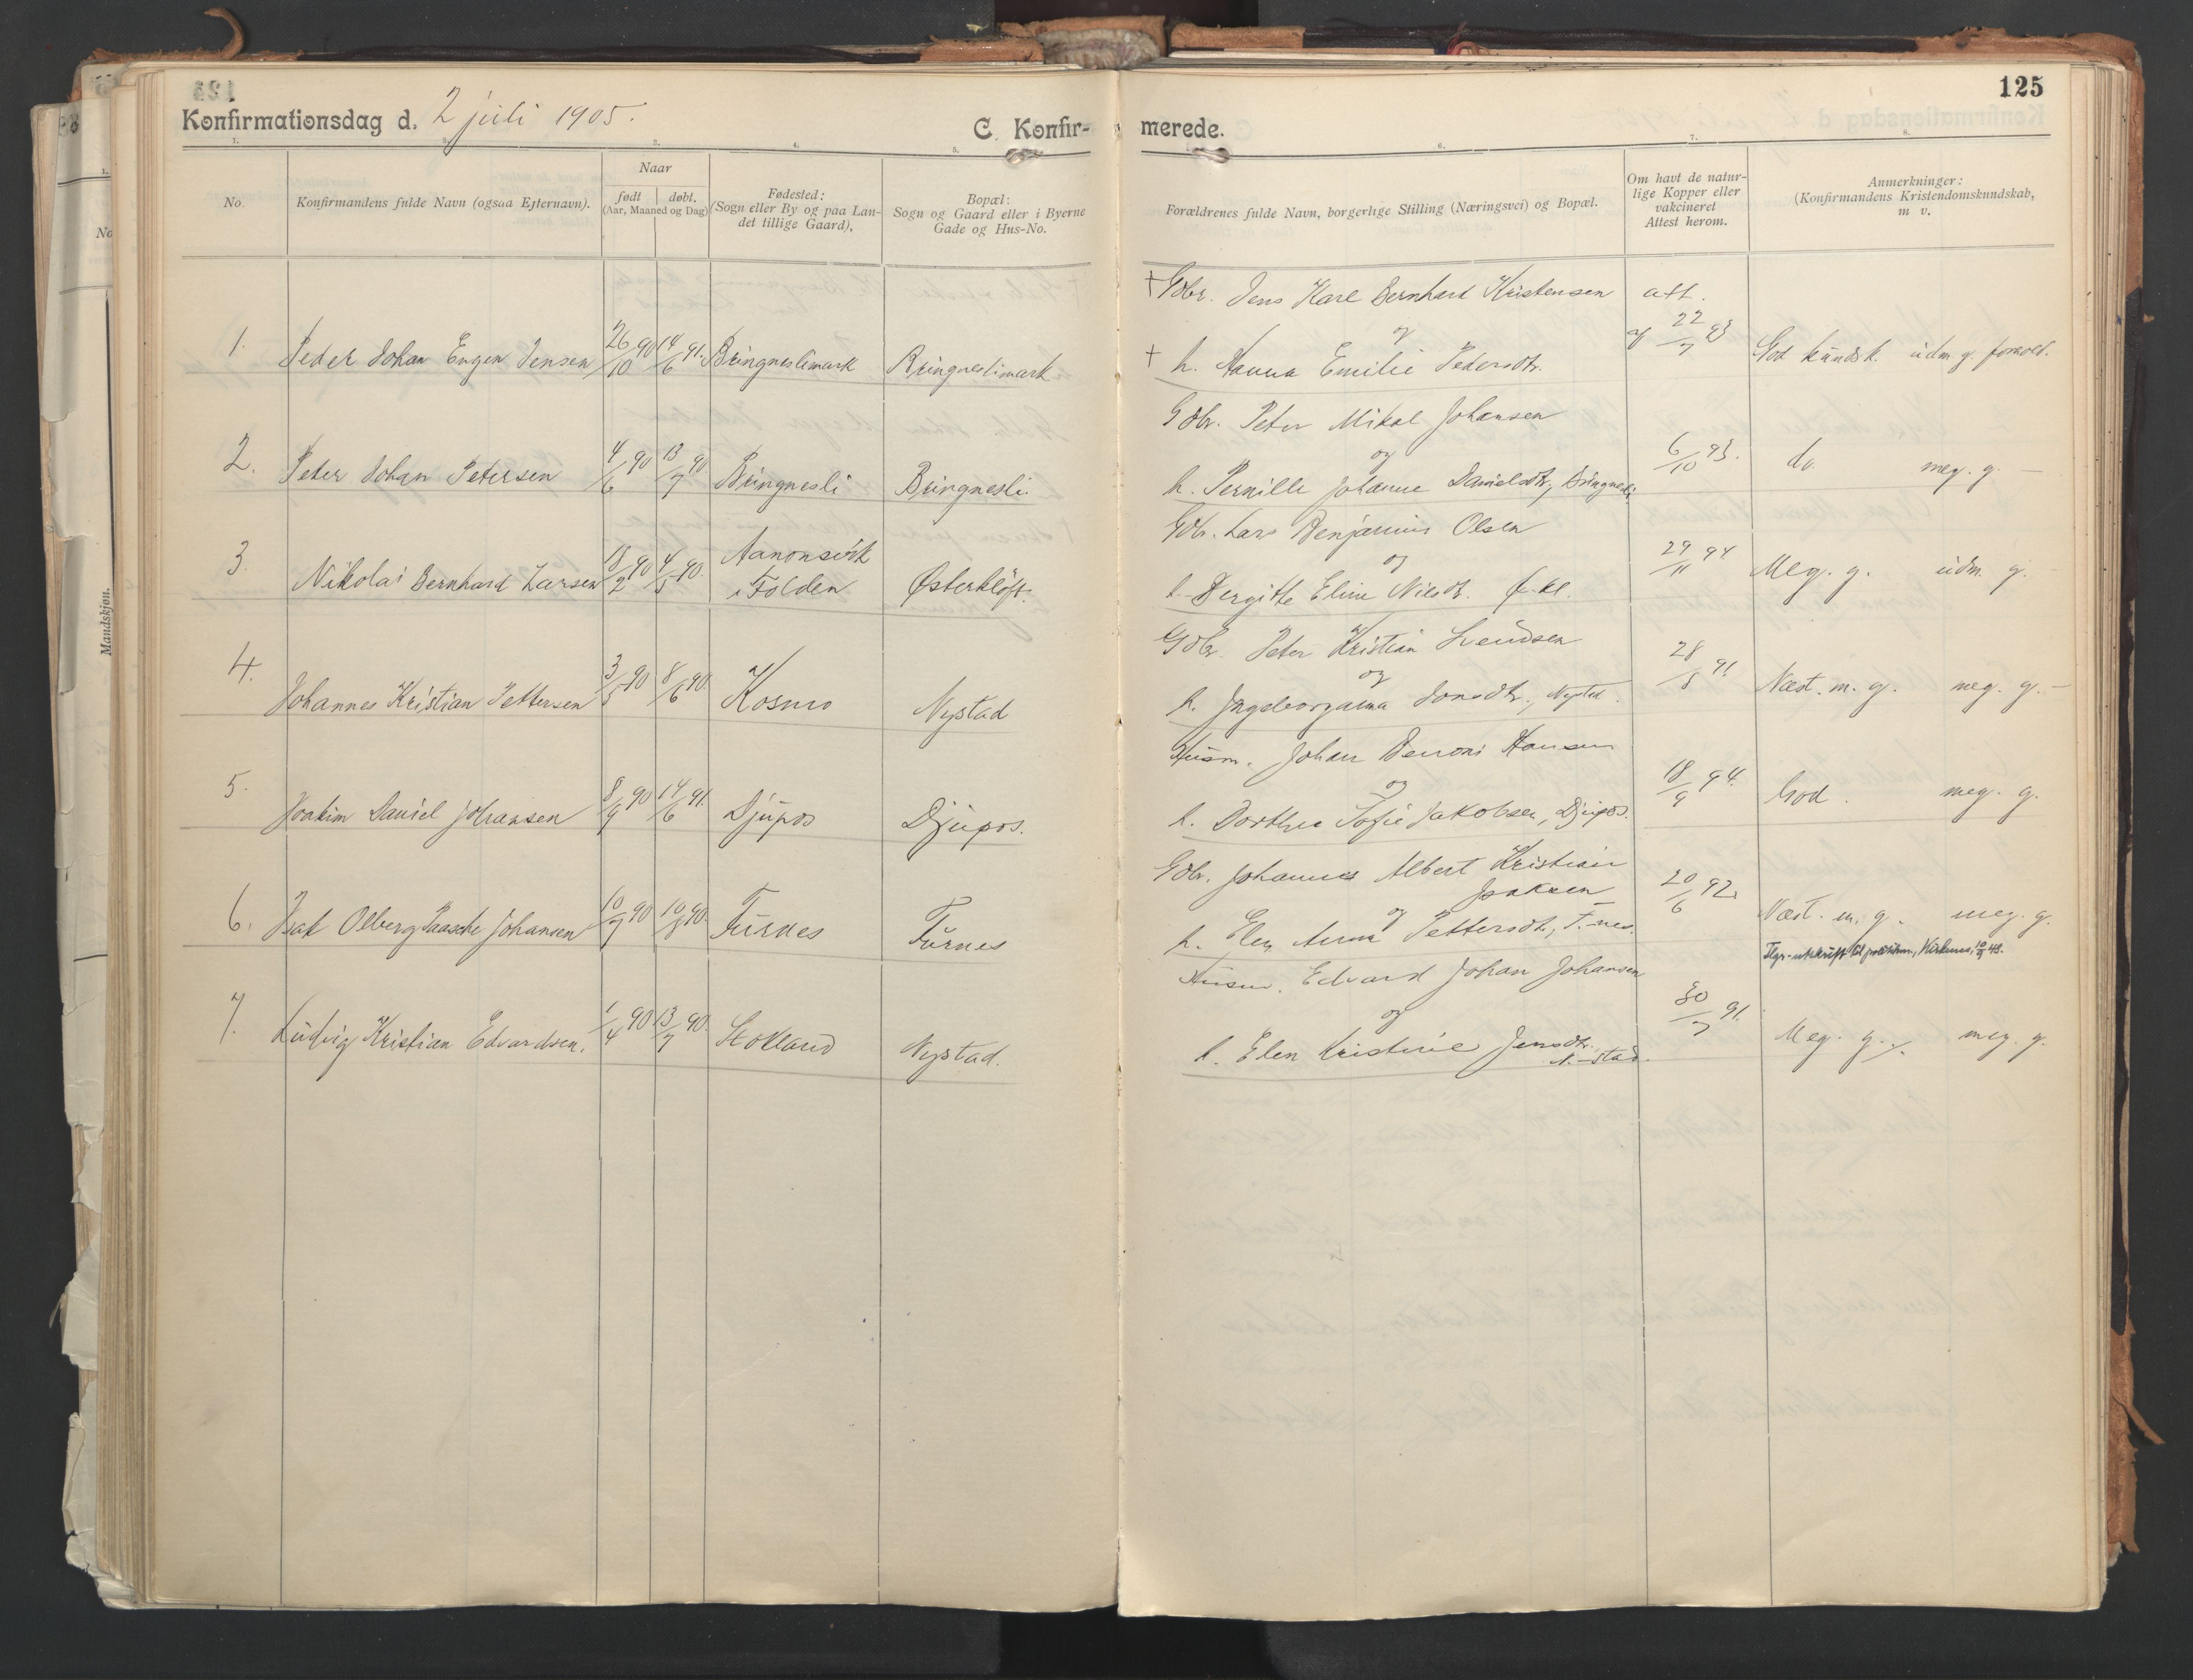 125
Konfirmationsdag d. 2 juli 1905.
C. Konfir-
merede.
1. 2. 3. 4. 5. 6. 7. 8.
No.
Konfirmandens fulde Navn (ogsaa Efternavn).
Naar
født
døbt.
(Aar, Maaned og Dag)
Fødested:
(Sogn eller By og paa Lan-
det tillige Gaard),
Bopæl:
Sogn og Gaard eller i Byerne
Gade og Hus-No.
Forældrenes fulde Navn, borgerlige Stilling (Næringsvei) og Bopæl.
Om havt de natur-
lige Kopper eller
vakcineret
Attest herom.
Anmerkninger:
(Konfirmandens Kristendomskundskab,
m v.
Mandskjøn.
1. Peder Johan Eugen Jensen 26/10 90 14/6 91. Bringneslimark Bringneslimark
† Gbr. Jens Karl Bernhard Kristensen
og
† h. Hanna Emilie Pedersdtr.
att.
22/7 93
God kundsk. udm g. forhold.
2. Peter Johan Petersen 4/6 90 13/7 90 Bringnesli Bringnesli.
Gbr. Peter Mikal Johansen
og
h. Pernille Johanne Danielsdtr, Bringnesli
6/10 93.
do. meg. g. —
3. Nikolai Bernhard Larsen 18/2 90 4/5 90. Aanonsvik
i Folden Østerkløft.
Gbr. Lars Benjamin Olsen
og
h. Bergitte Eline Nilsdtr. Ø.-kl.
29/11 94
Meg. g. udm. g. —
4. Johannes Kristian Pettersen 3/5 90 8/6 90. Kosmo Nystad
Gbr. Peter Kristian Svendsen
og
h. Ingeborganna Jonsdtr., Nystad.
28/5 91
Næst. m. g. meg. g. —
5. Joakim Daniel Johansen 8/9 90 14/6 91. Djupos Djupos.
Husm. Johan Benoni Hansen
og
h. Dorthea Sofie Jakobsen, Djupos.
18/9 94.
God. meg. g.
6. Isak Olberg Paasche Johansen 10/7 90 10/8 90. Furnes Furnes
Gbr. Johannes Albert Kristian
Isaksen
og
h. Elen Anna Pettersdtr, F.-nes.
20/6 92.
Næst. m. g. meg. g.
7. Ludvig Kristian Edvardsen. 1/4 90 13/7 90. Stokland Nystad.
Husm. Edvard Johan Johansen
og
h. Elen Kristine Jensdtr.
N.-stad.
30/7 91.
Meg. g. meg. g.